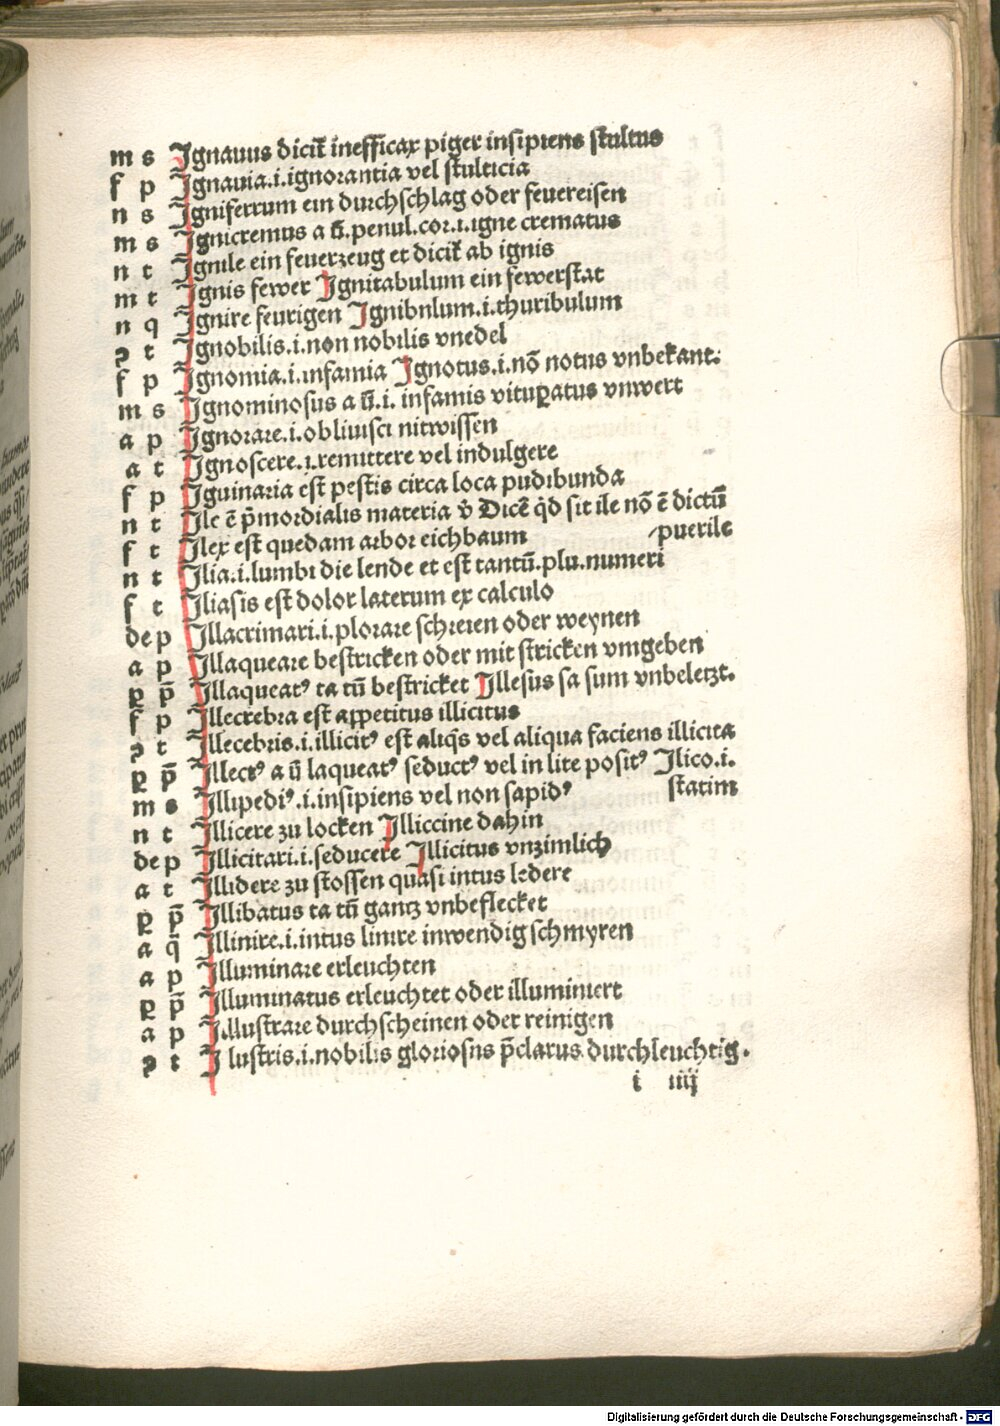 m s Ignauus diciť inefficax piger insipiens stultus
f p Ignauia.i.ignorantia vel stulticia
n s Igniferrum ein durchschlag oder feuereisen
m s Ignicremus a ū.penul.cor.i.igne crematus
n t Ignile ein feuerzeug et diciť ab ignis
m t Ignis fewer Ignitabulum ein fewerstat
n q Ignire feurigen Ignibnlum.i.thuribulum
ꝛ t Ignobilis.i.non nobilis vnedel
f p Ignomia.i.infamia Ignotus.i.nō notus vnbekant:
m s Ignominosus a ū.i. infamis vituꝑatus vnwert
a p Ignorare.i.obliuisci nitwissen
a t Ignoscere.i.remittere vel indulgere
f p Iguinaria est pestis circa loca pudibunda
n t Ile ē p̄mordialis materia v̉ Dicē qđ sit ile nō ē dictū
f t Ilex est quedam arbor eichbaum puerile
n t Ilia.i.lumbi die lende et est tantū.plu.numeri
f t Iliasis est dolor laterum ex calculo
de p Illacrimari.i.plorare schreien oder weynen
a p Illaqueare bestricken oder mit stricken vmgeben
ꝑ p̄ Illaqueatꝰ ta tū bestricket Illesus sa sum vnbeletzt.
f p Illecrebra est appetitus illicitus
ꝛ t Illecebris.i.illicitꝰ est aliq̄s vel aliqua faciens illicita
ꝑ p̄ Illectꝰ a ū laqueatꝰ seductꝰ vel in lite positꝰ Ilico.i.
m s Illipediꝰ.i.insipiens vel non sapidꝰ statim
n t Illicere zu locken Illiccine dahin
de p Illicitari.i.seducere Illicitus vnzimlich
a t Illidere zu stossen quasi intus ledere
ꝑ p̄ Illibatus ta tū gantz vnbeflecket
a q̄ Illinire.i.intus linire inwendig schmyren
a p Illuminare erleuchten
ꝑ p̄ Illuminatus erleuchtet oder illuminiert
a p Illustrare durchscheinen oder reinigen
ꝛ t I lustris.i.nobilis gloriosns p̄clarus durchleuchtig.
i iiij
Digitalisierung gefördert durch die Deutsche Forschungsgemeinschaft - DFG